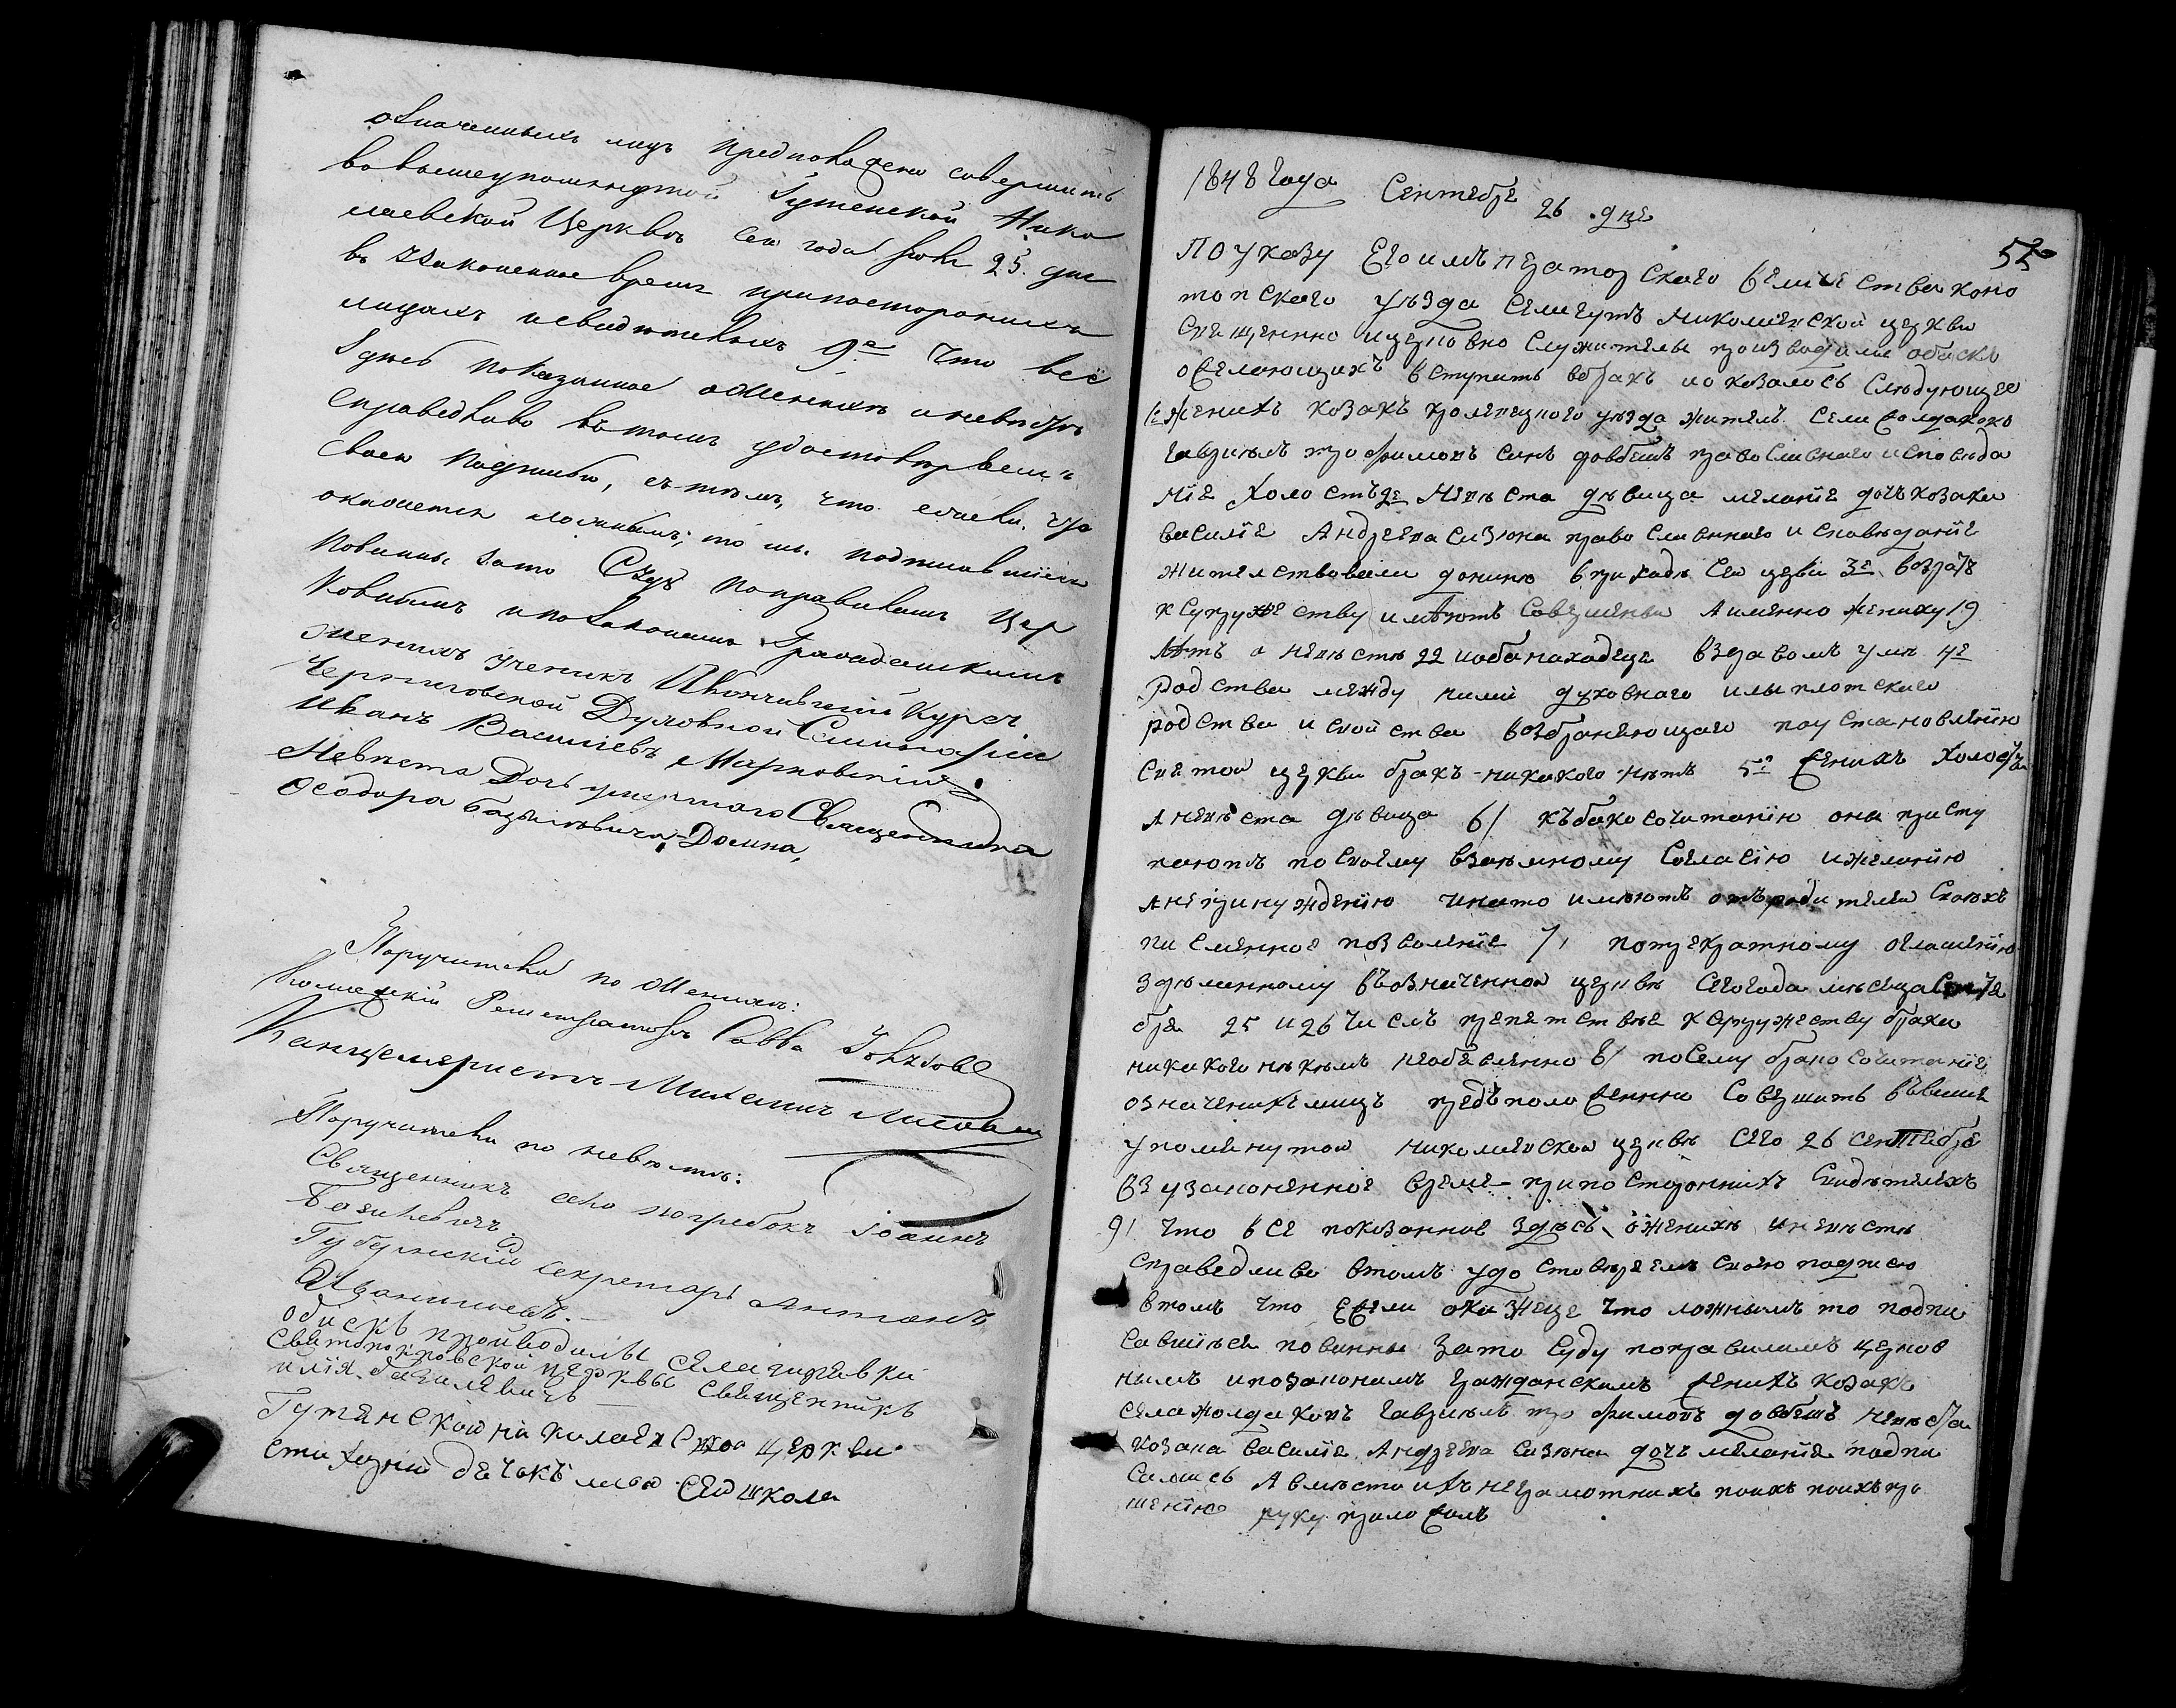 означенныхъ лицъ предположено совершить
вовышеупомянутой Гутенской Нико
лаевской Церквѣ сего года Июля 25. дня
въ узаконенное время припостороннихъ
лицахъ исвидѣтеляхъ 9е Что всё
здѣсь показанное оженихѣ иневѣстѣ
Справедливо вътомъ удостовѣряемъ
своею подписью, съ тѣмъ, что естьли что
окажется ложнымъ, то мы подписавшіеся
повинны зато Суду поправиламъ Цер
ковнымъ ипозаконамъ Гражданскимъ
женихъ Ученикъ Окончившій Курсъ
Черниговской Духовной Семинаріи
Иванъ Васильевъ Марковскій
Невѣста Дочь умершаго Священника
Ѳеодора Базилевича Домна,
Поручители по женихѣ:
Коллежскій Регистраторъ Савва
Канцеляристъ Михаилъ
Поручители по невѣстѣ:
Священникъ села погребокъ Іоаннъ
Базилевичъ
Губернскій секретарь Антонъ
обискъ производилы села
Святопокровской церквы Священникъ
илія базилевичъ
Гутянской николаевской церкви
стихарній дячокъ
1848 года Сентебре 26 дне
52
По указу Его императорскаго величества коно
топскаго уѣзда села гутъ николаевской церкви
священно ицерковно служителы производилы обискъ
о желающихъ вступить вбракъ иоказалось слѣдующее
1е женихъ козакъ кролевецкого уѣзда житель села
гавріилъ трофимовъ синъ довбишъ православнаго исповѣда
ніе холостъ 2е Невѣста дѣвица меланіе дочъ козака
василіе Андреева сизюна православнаго исповѣданіе
жителствовали донинѣ вприходѣ сей церкви 3е возратъ
к супружеству имѣютъ совершенны Аименно жениху 19
лѣтъ а невѣстѣ 22 иоба находеця вздравомъ умѣ 4е
родства между ними духовнаго илы плотскаго
родства и свойства возбраняющаго поустановленію
светой церкви бракъ никакого нѣтъ 5е женихъ холостъ
А невѣста дѣвица 6/ къбракосочитанію они присту
паютъ по своему взаимному согласію ижеланію
анепринуждению инато имѣютъ отъродителей своихъ
писменное позволеніе 7/ потрекратному оглашенію
здѣланному въозначенной церквѣ сегогода мѣсяца сенте
бре 25 и 26 числъ препятствіе ксупружеству браки
никакого нѣкимъ необевленно 8/ посему бракосочитаніе
означенихълицъ предъположенно совершить въвише
упоминутой николаевской церквѣ сего 26 сентебре
взузаконенное време припосторонних свидѣтелях
9/ что все показанное здѣсь оженихѣ иневѣстѣ
справедливо втомъ удостоверяемъ своею подписю
втомъ что ежели окажеце что ложнымъ то подпи
савшійся повинны зато суду поправиламъ церков
нымъ ипозаконамъ гражданскимъ женихъ козакъ
села гавріилъ трофимовъ довбишъ невѣста
козака василіе Андреева сизюна дочъ меланіе подпи
салисъ Авмѣсто ихъ неграмотнихъ поихъ про
шенію руку приложилъ